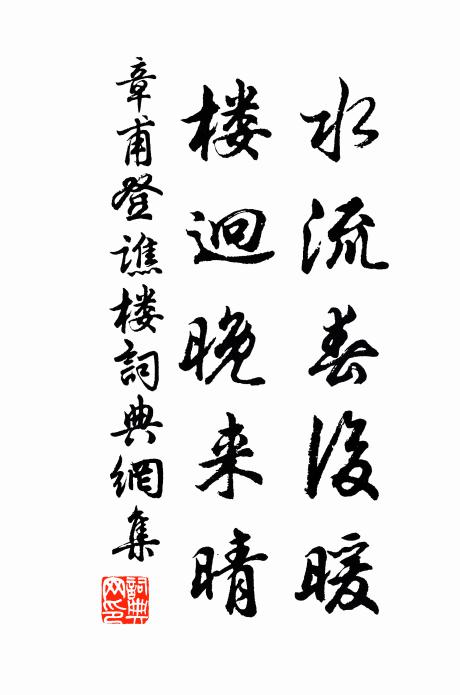 水流春後暖
楼迥晚来晴
章甫登譙楼詞典網集
詞典网印